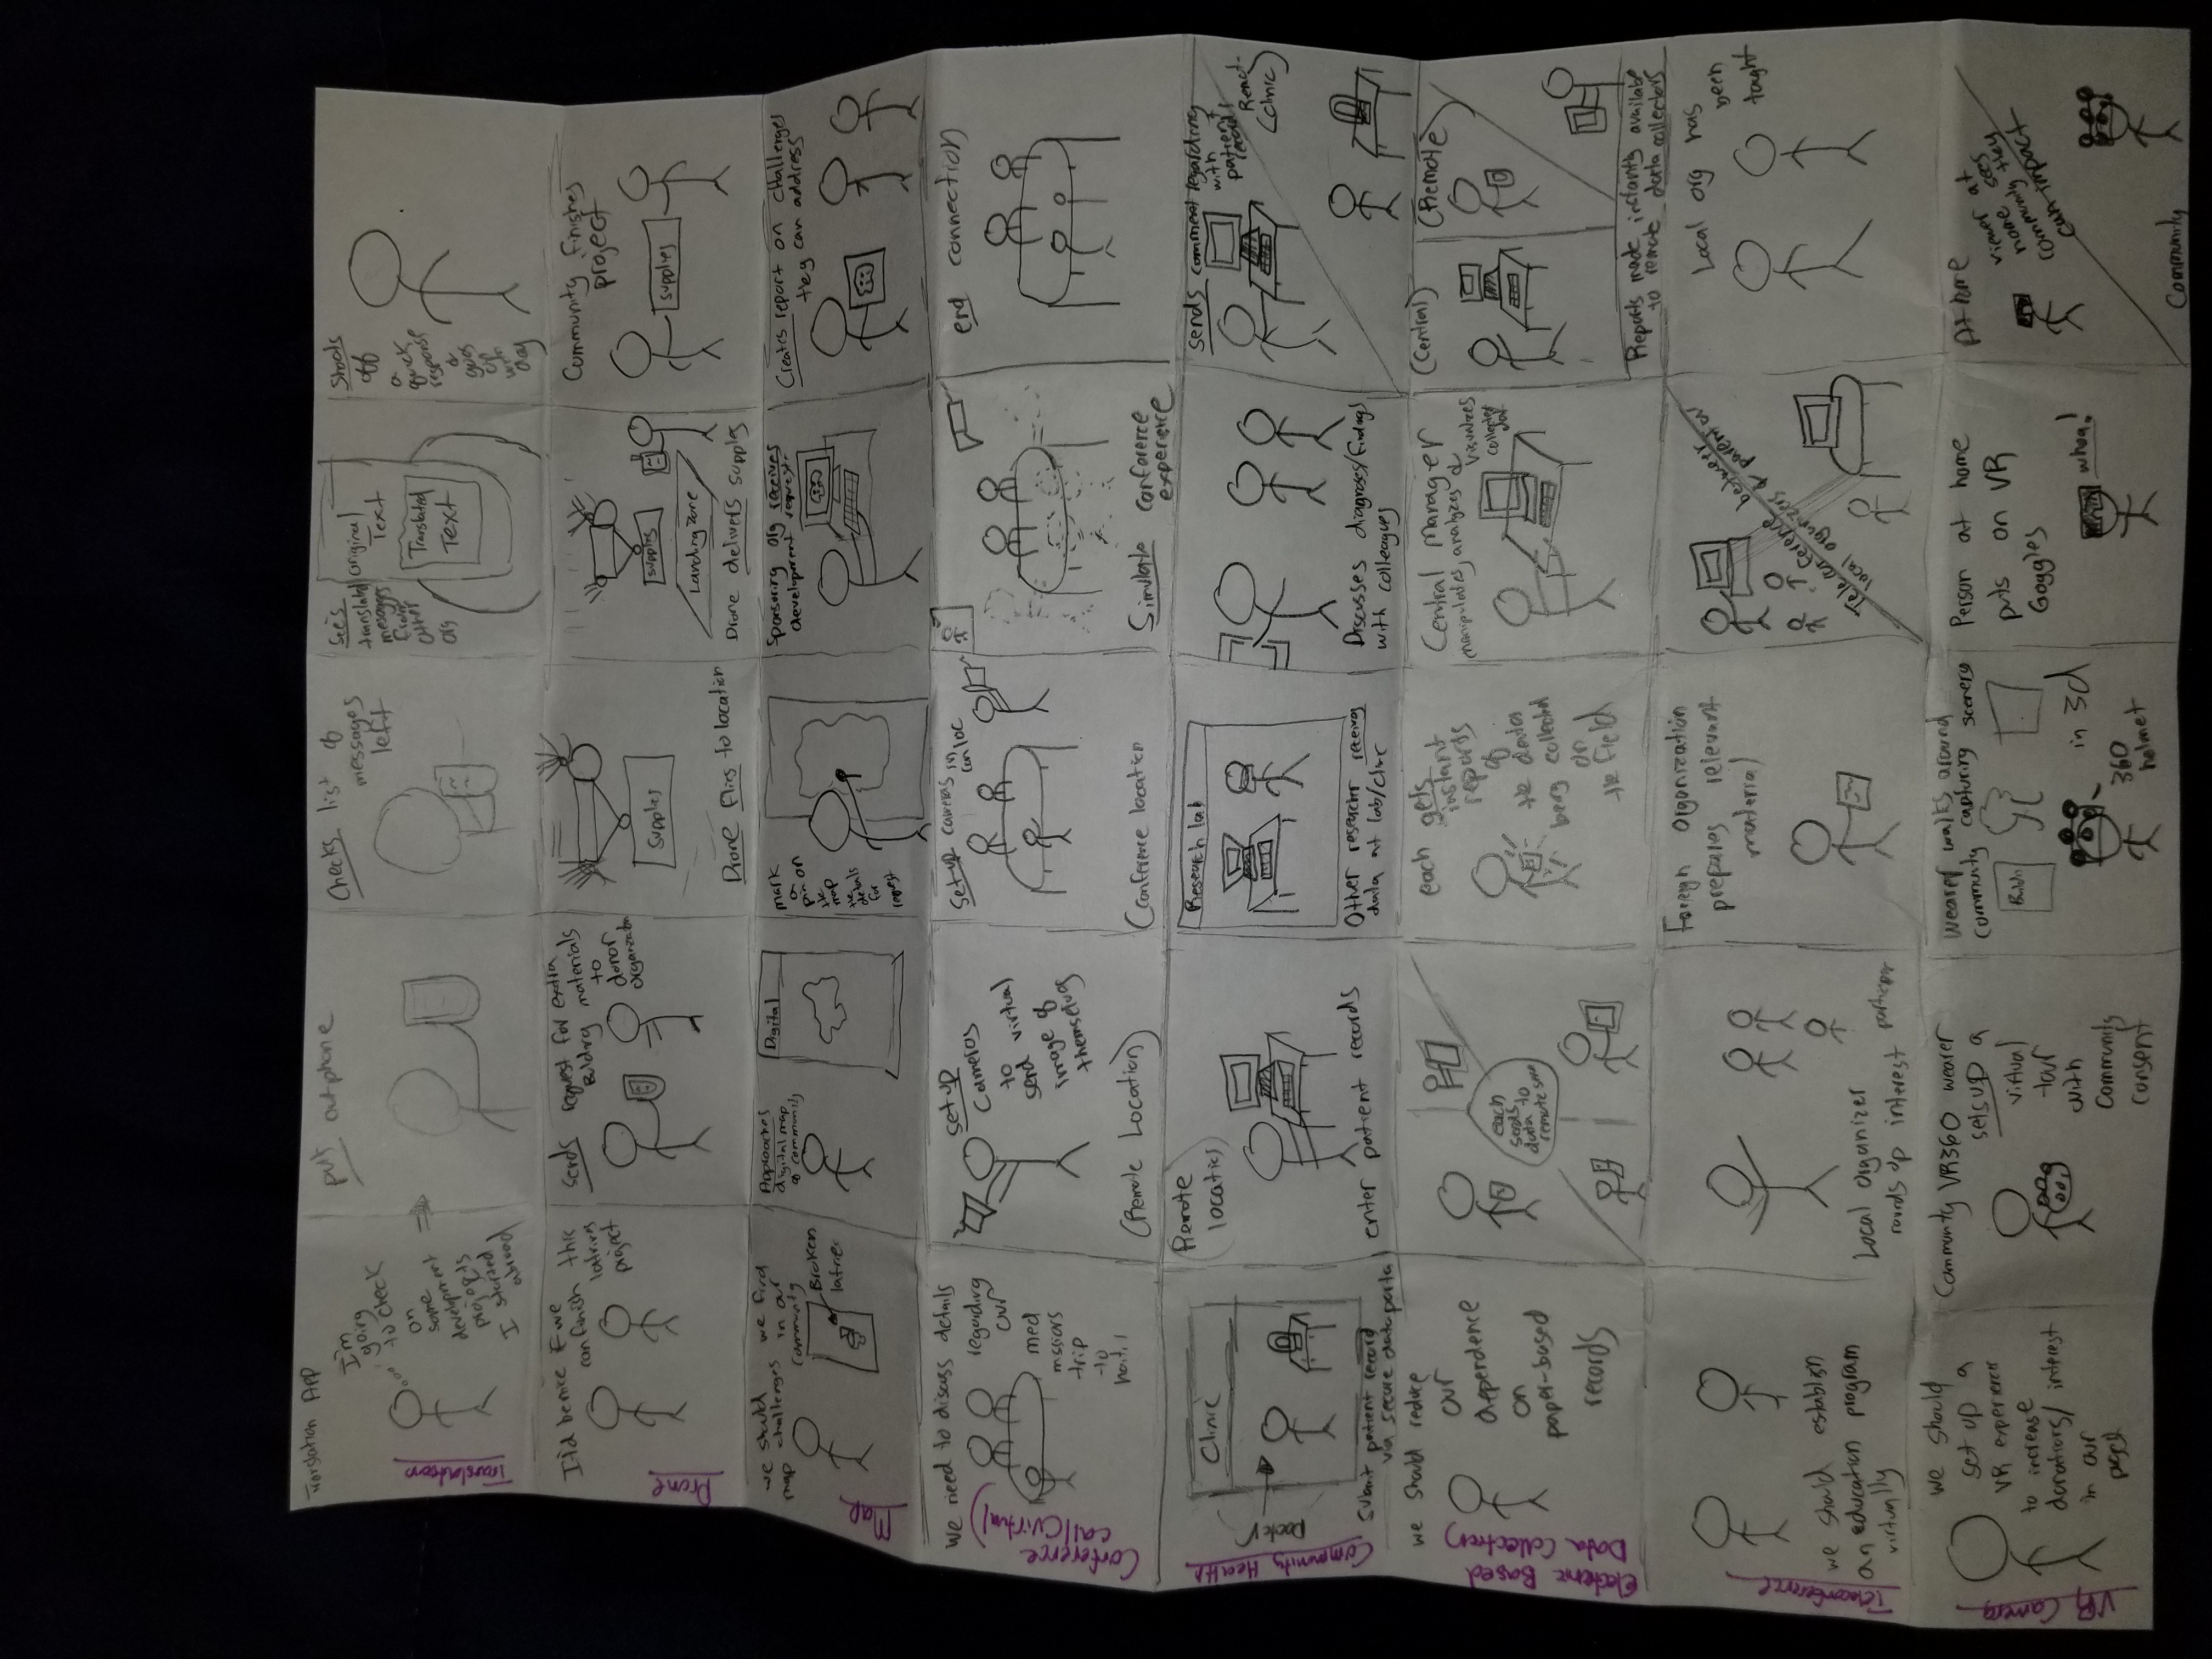 Translation App
Translation
I'm
going
to check
on
some
development
projects
I started
abroad
pulls out phone
Checks list of
messages
left
sees
translated
messages
from
other
org
Original
Text
Translated
Text
Shoots
off
a
quick
response
&
goes
up
with
day
Drone
It'd be nice if we
can finish this
latrine
project
sends request for extra
Building materials
to
donor
organization
supplies
Drone Flies to location
supplies
Landing Zone
Drone delivers supplies
Community finishes
project
supplies
Map
we should
map challenges
we find
in our
community
Broken
latrine
Approaches
digital map
of community
Digital
mark
a
pin on
the
map
the
details
for
request
Sponsoring org receives
development request
Creates report on challenges
they can address
Conference
call (virtual)
We need to discuss details
regarding
our
med
missions
trip
to
haiti
set up
cameras
to
send virtual
image of
themselves
(Remote Location)
Set-up cameras in
con loc
(Conference location
Simulate conference
experience
end connection
Community Health
Doctor
Clinic
Submit patient record
via secure data portal
Remote
location
enter patient records
Research lab
Other researcher receives
data at lab/clinic
Discusses diagnoses/findings
with colleagues
sends comment regarding
with
patient
record
(clinic)
Electronic Based
Data Collection
we should reduce
our
dependence
on
paper-based
records
each
sends
data to
remote
each gets
instant
reports
of
the data
being collected
on
the field
Central Manager
manipulates, analyzes &
visualizes
collected
(Central)
(Remote)
Reports made instantly available
to remote data collectors
Teleconference
we should establish
an education program
virtually
Local organizer
rounds up interest
Foreign organization
prepares relevant
material
Teleconference between
local organizers & parent
Local org has
been
taught
VR Camera
we should
set up a
VR experience
to increase
donations/interest
in our
project
Community VR360 wearer
sets up a
virtual
tour
with
community
consent
wearer walks around
community capturing scenery
in 3d
360
helmet
Person at home
puts on VR
Goggles
whoa!
At home
viewer at
home sees
community they
can impact
Community